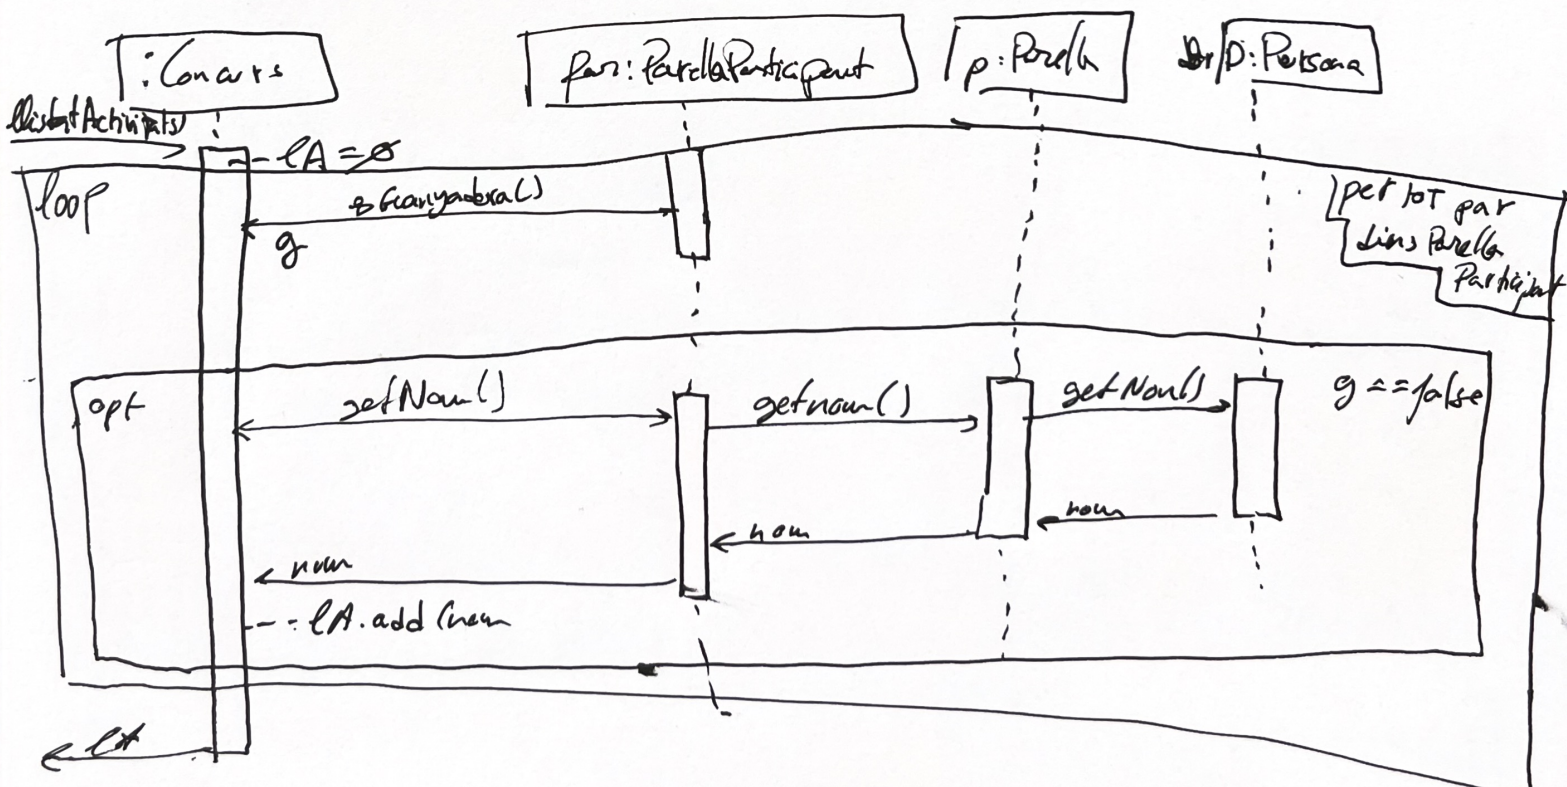 :Concurs
par:ParellaParticipant
p:Parella
D:Persona
llistatActivitats)
lA = ∅
loop
esGanyadora()
g
per tot par
dins Parella
Participant
opt
getNom()
getnom()
getNom()
g == false
nom
nom
nom
lA.add(nom
lA